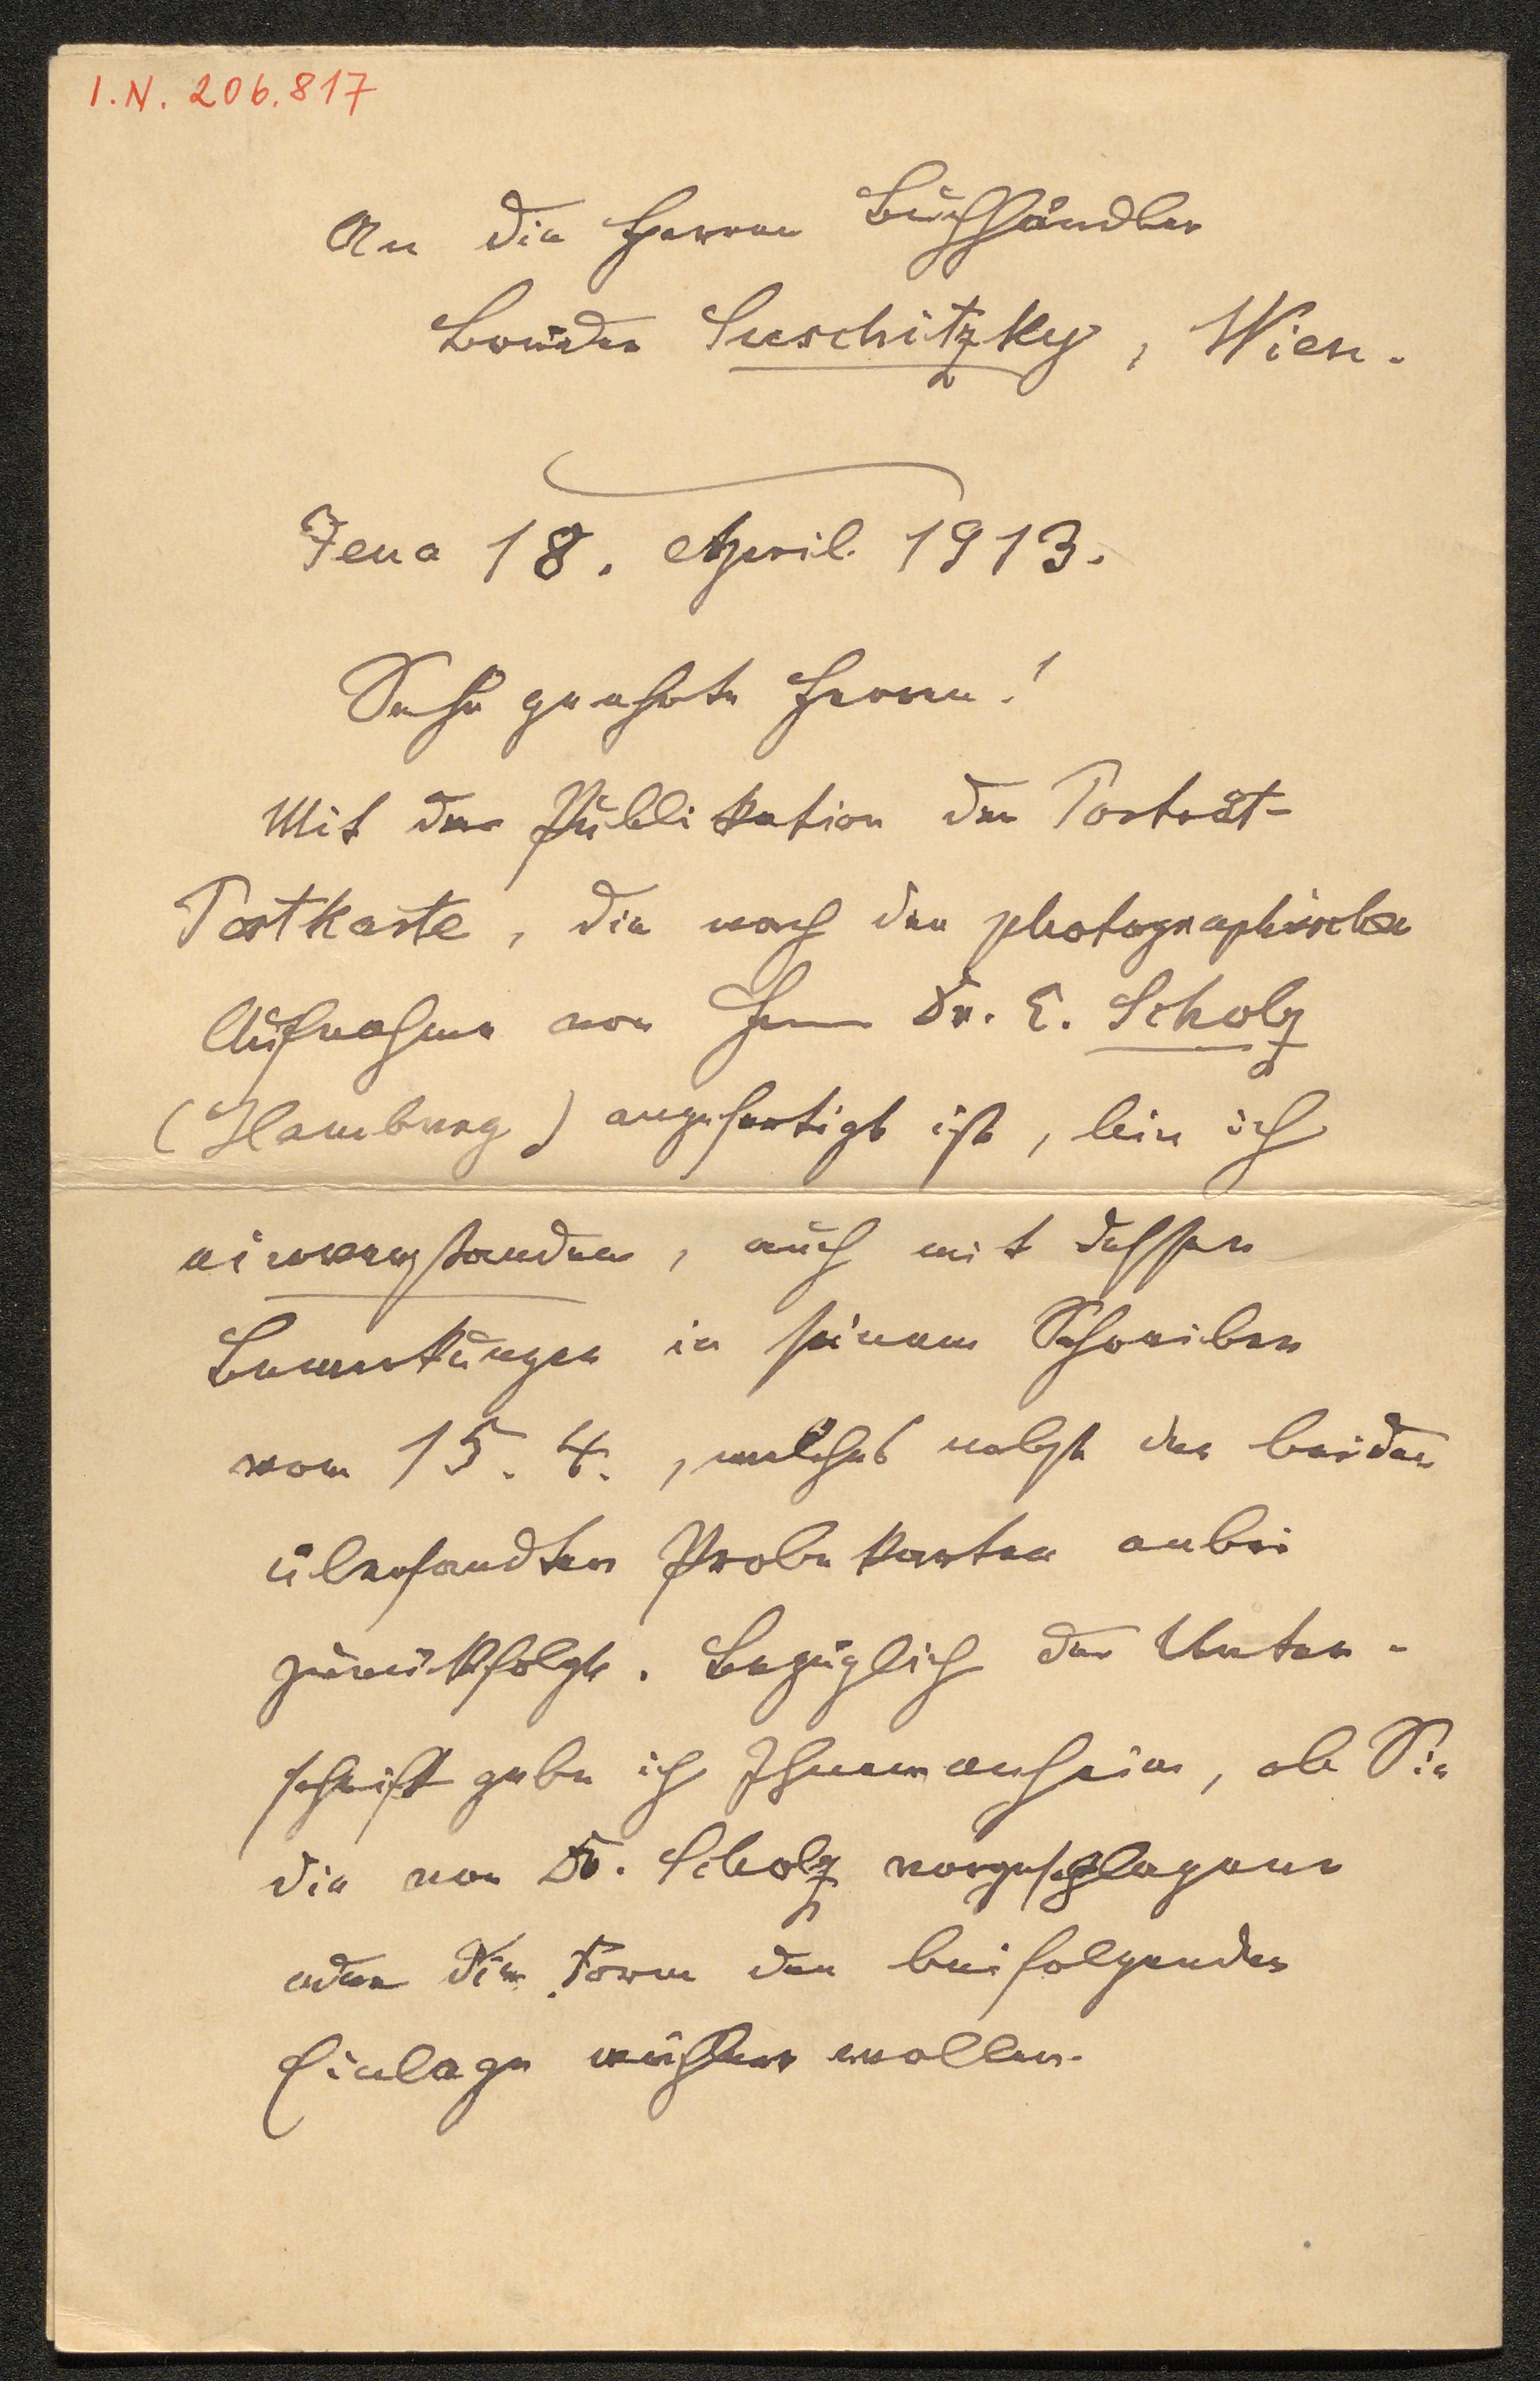 I.N. 206.817
An die Herren Buchhändler
Brüder Suschitzky, Wien.
Jena 18. April 1913.
Sehr geehrte Herren!
Mit der Publikation der Porträt-
Postkarte, die nach der photographischen
Aufnahme von Herrn Dr. E. Scholz
(Hamburg) angefertigt ist, bin ich
einverstanden, auch mit dessen
Bemerkungen in seinem Schreiben
vom 15. 4., welches nebst den beiden
übersandten Probekarten anbei
zurückfolgt. Bezüglich der Unter-
schrift gebe ich Ihnen anheim, ob Sie
die von Dr. Scholz vorgeschlagene
oder die Form der beifolgenden
Einlage wählen wollen.